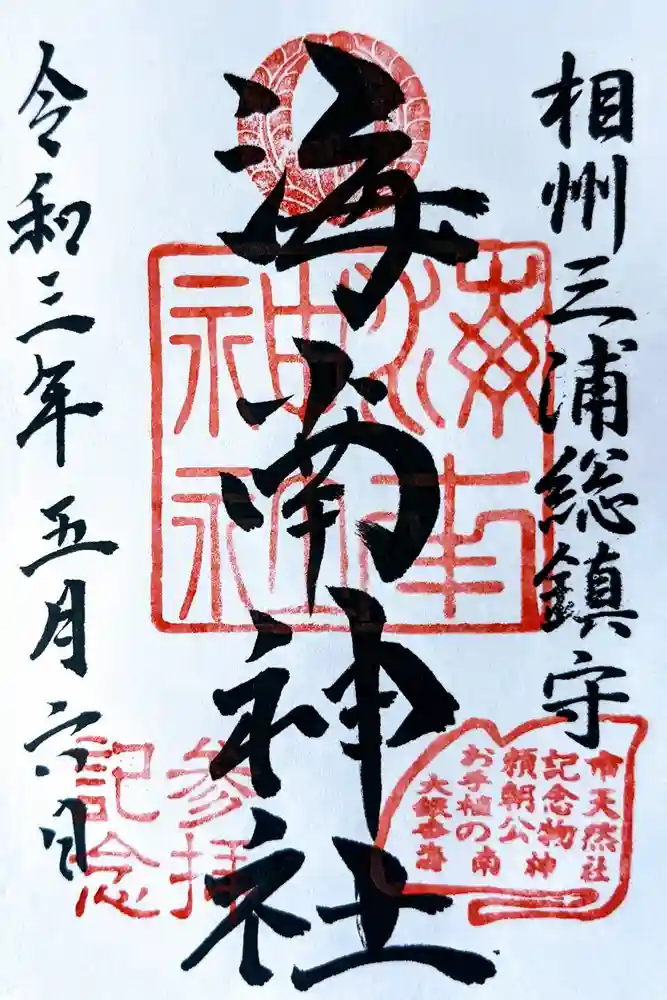 相州三浦総鎮守
海南神社
令和三年五月六日
海南
神社
参拝
記念
市天然
記念物
頼朝公
お手植の
大銀杏
海南神社